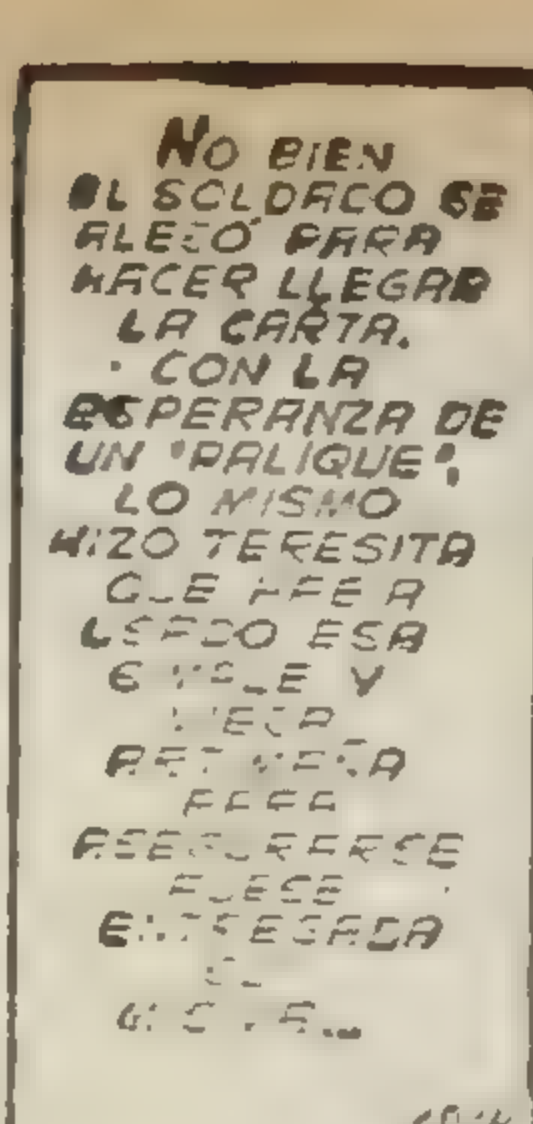 NO BIEN
EL SOLDADO SE
ALEJÓ PARA
HACER LLEGAR
LA CARTA.
CON LA
ESPERANZA DE
UN "PALIQUE",
LO MISMO
HIZO TERESITA
QUE
ESA
SIMPLE Y
VIEJA
ARTIMAÑA
PARA
ASEGURARSE
FUESE
ENTREGADA